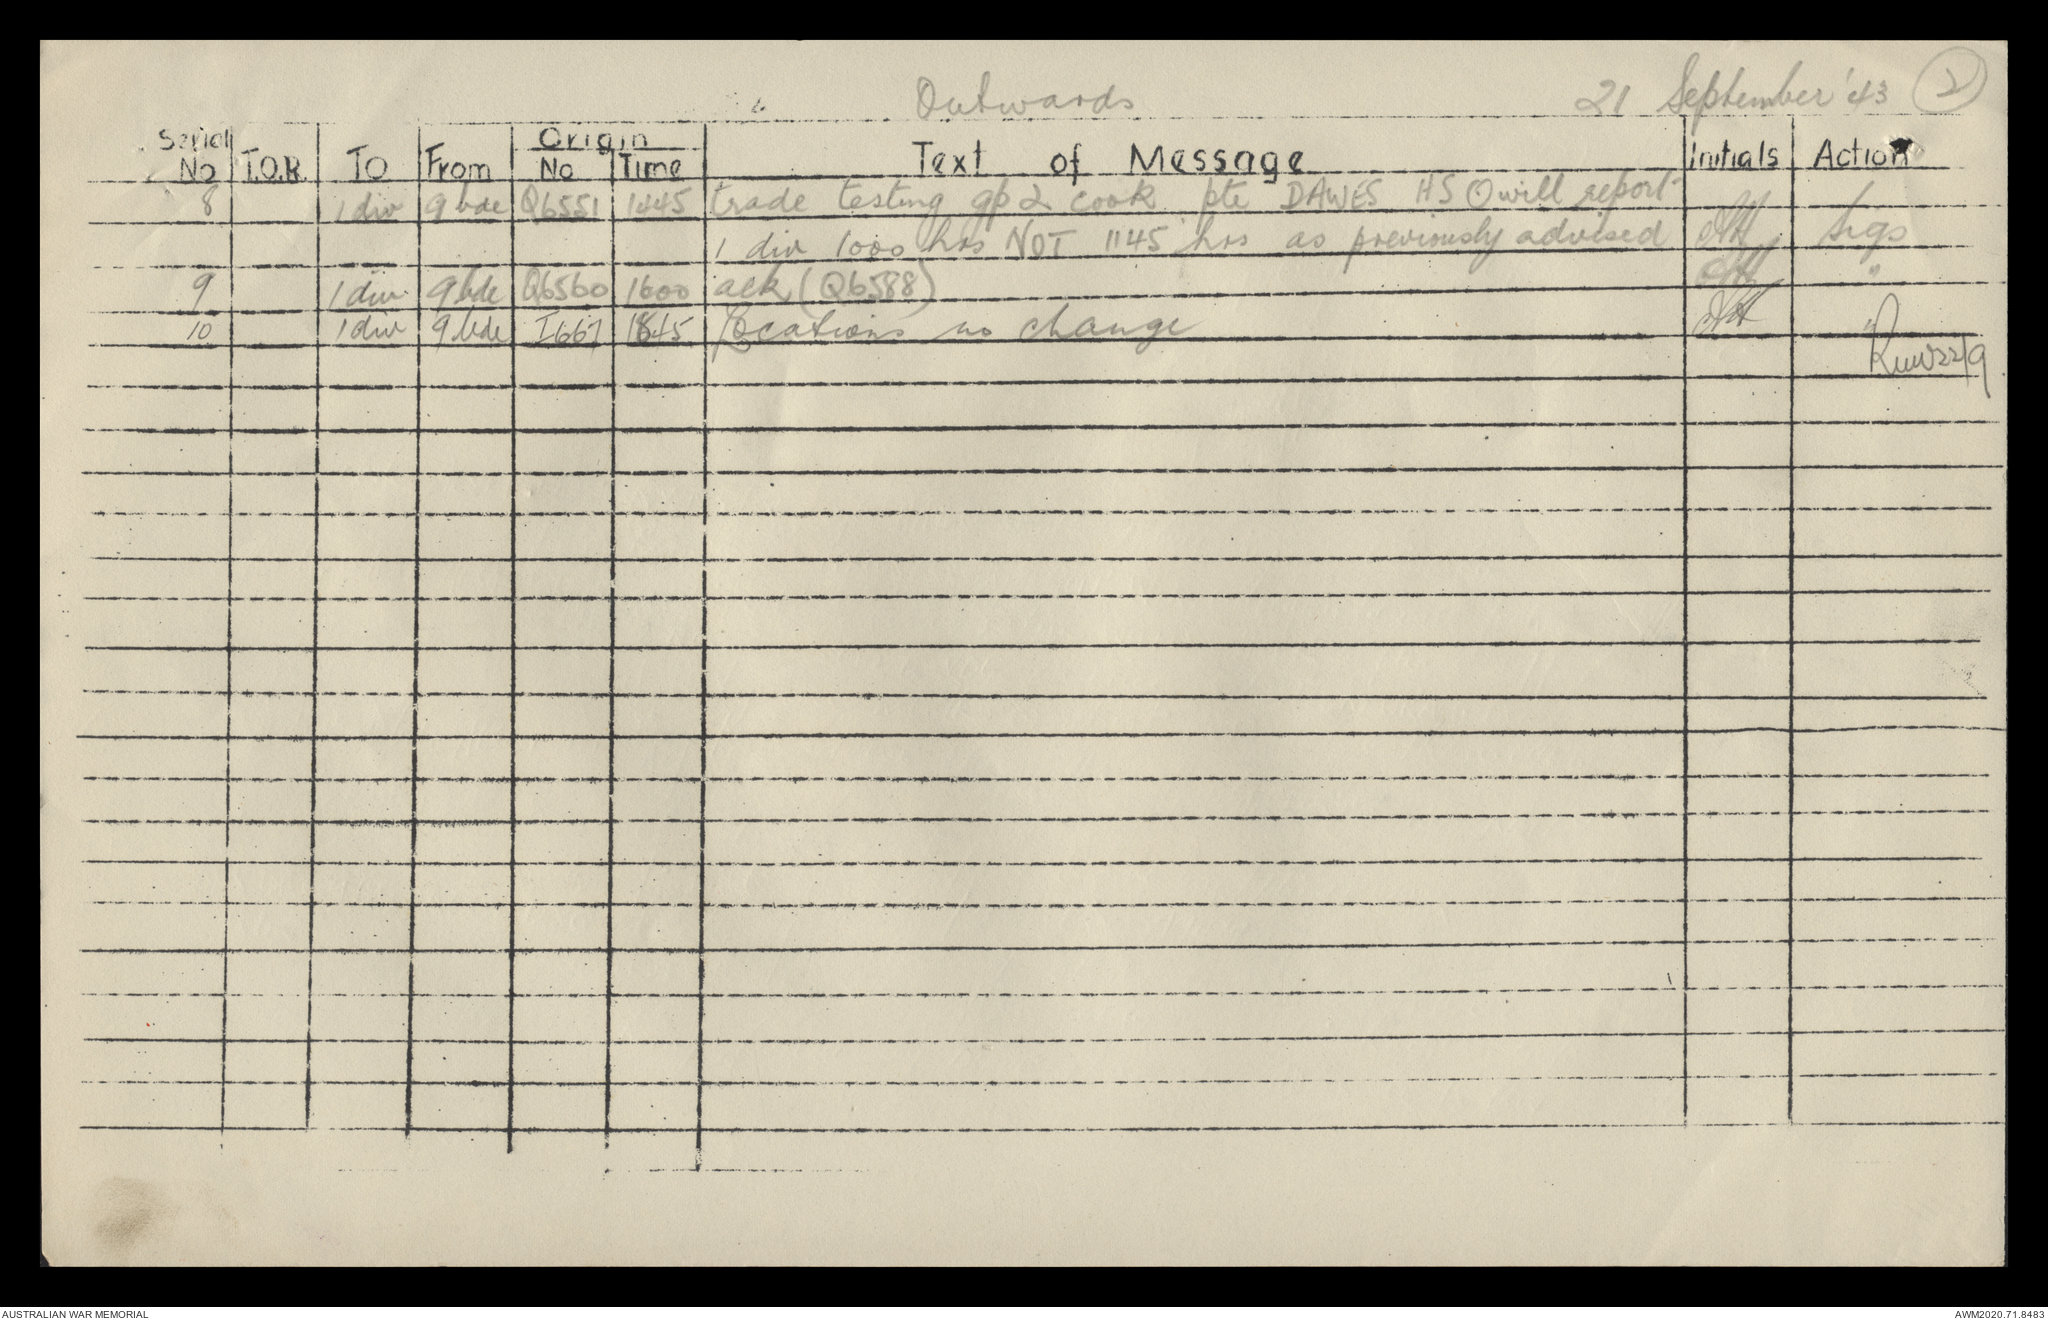 Outwards 21 September '43 2
Serial Origin
No T.O.R. TO From No Time Text of Message Initials Action
8 1 div 9 bde Q6551 1445 trade testing gp 2 cook pte DAWES HS O will report
1 div 1000 hrs NOT 1145 hrs as previously advised Sigs
9 1 div 9 bde Q6560 1600 ack (Q6588) "
10 1 div 9 bde I667 1845 Locations no change "
22/9
AUSTRALIAN WAR MEMORIAL AWM2020.71.8483